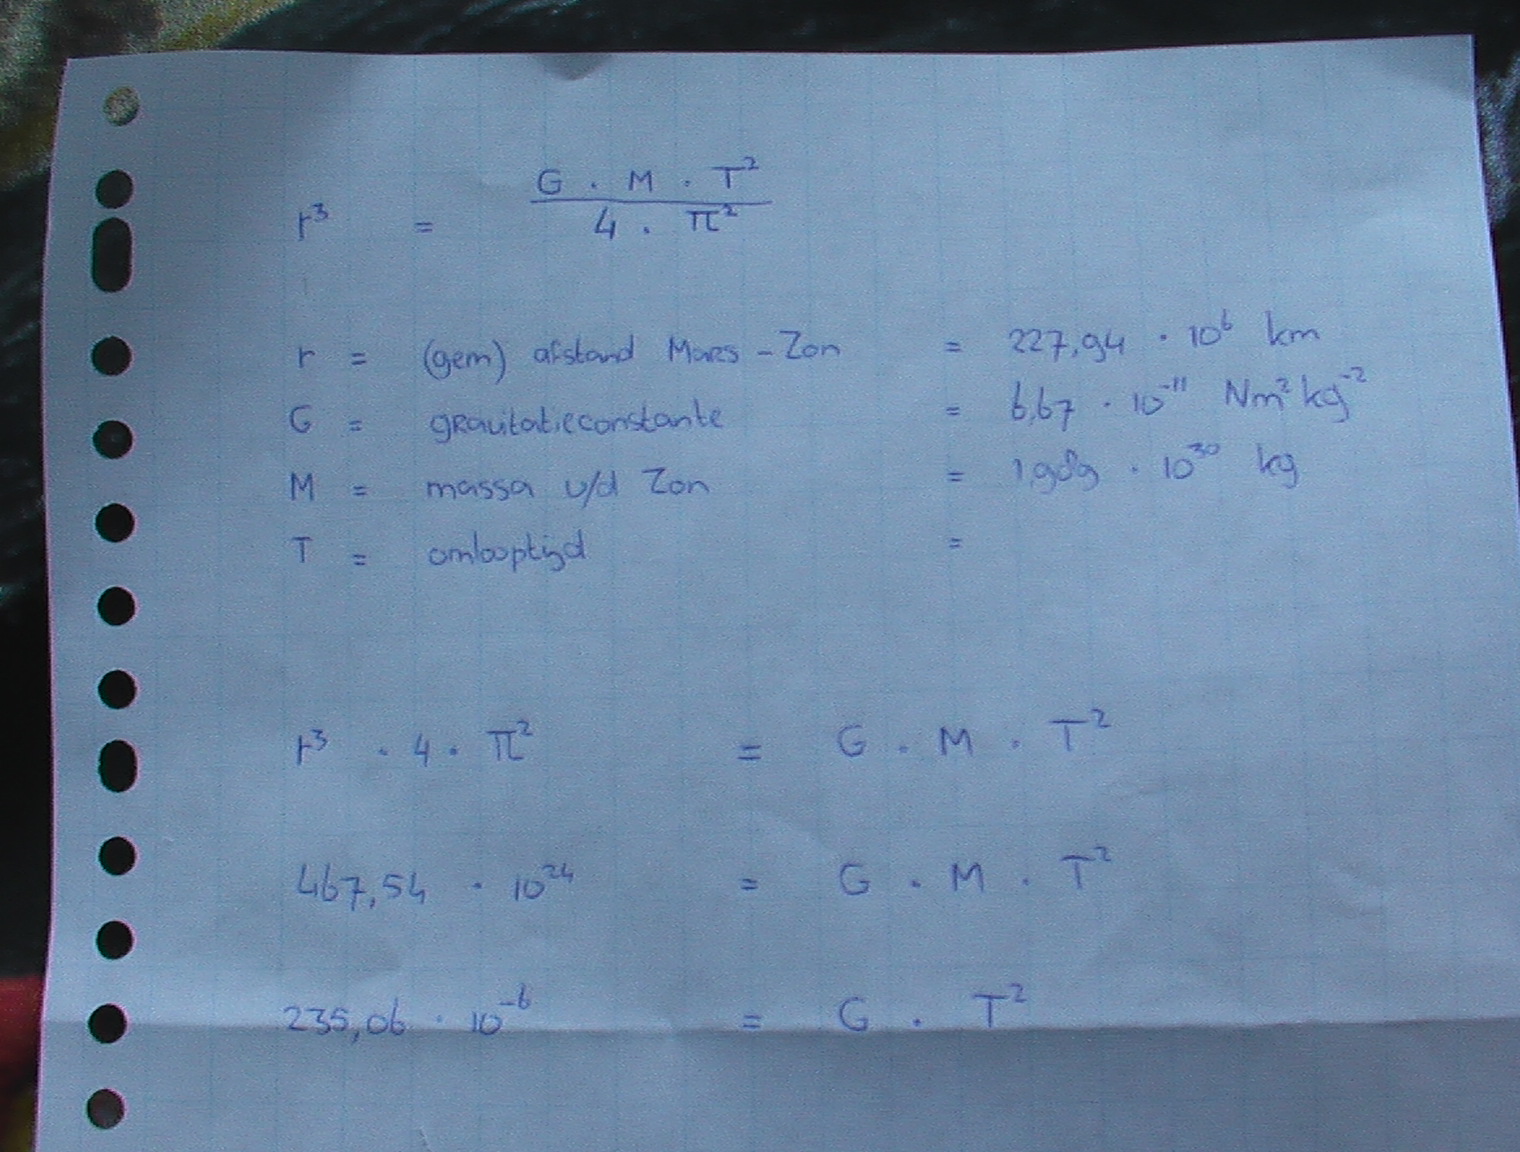 r³ = G . M . T² / 4 . π²
r = (gem) afstand Mars - Zon = 227,94 · 10⁶ km
G = gravitatieconstante = 6,67 · 10⁻¹¹ Nm²kg⁻²
M = massa v/d Zon = 1,989 · 10³⁰ kg
T = omlooptijd =
r³ · 4 · π² = G . M . T²
467,54 · 10²⁴ = G . M . T²
235,06 · 10⁻⁶ = G . T²